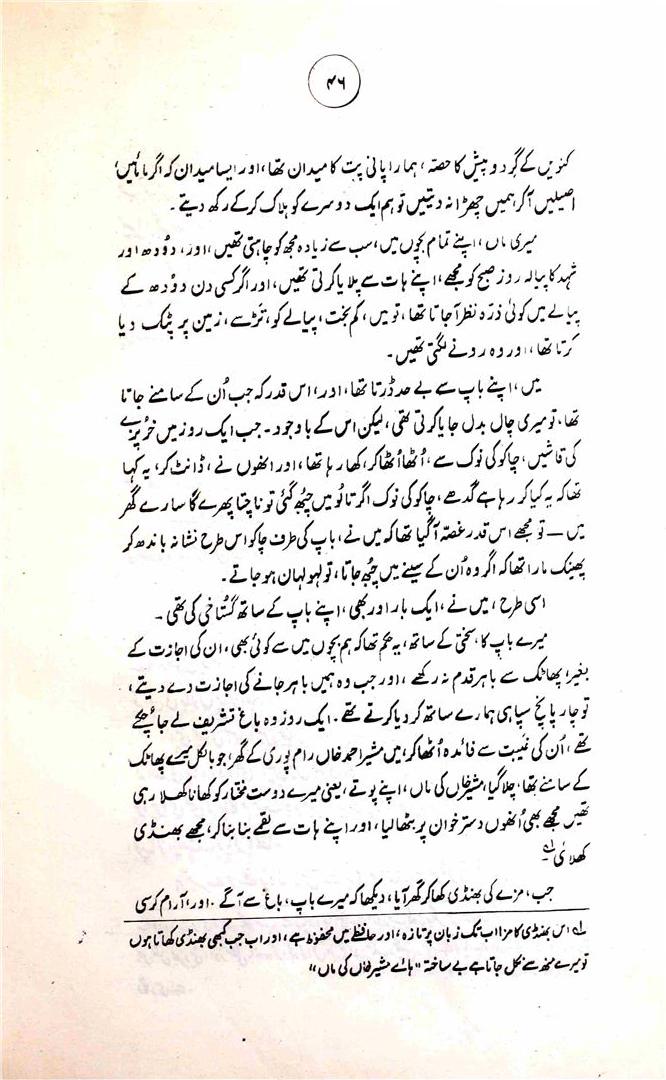 ۴۶
کنویں کے گرد و پیش کا حصہ، ہمارا پانی پت کا میدان تھا، اور ایسا میدان کہ اگر مائیں،
اصیلیں آ کر ہمیں چھڑا نہ دیتیں تو ہم ایک دوسرے کو ہلاک کر کے رکھ دیتے۔
میری ماں، اپنے تمام بچوں میں، سب سے زیادہ مجھ کو چاہتی تھیں، اور، دودھ اور
شہد کا پیالہ روز صبح کو مجھے، اپنے ہات سے پلایا کرتی تھیں، اور اگر کسی دن دودھ کے
پیالے میں کوئی ذرہ نظر آ جاتا تھا، تو میں، کم بخت، پیالے کو، تڑ سے، زمین پر پٹک دیا
کرتا تھا، اور وہ رونے لگتی تھیں۔
میں، اپنے باپ سے بے حد ڈرتا تھا، اور، اس قدر کہ جب اُن کے سامنے جاتا
تھا، تو میری چال بدل جایا کرتی تھی، لیکن اس کے باوجود۔ جب ایک روز میں خربزے
کی قاشیں، چاکو کی نوک سے، اُٹھا اُٹھا کر، کھا رہا تھا، اور انھوں نے، ڈانٹ کر، یہ کہا
تھا کہ یہ کیا کر رہا ہے گدھے، چاکو کی نوک اگر تالو میں چبھ گئی تو ناچتا پھرے گا سارے گھر
میں — تو مجھے اس قدر غصّہ آ گیا تھا کہ میں نے، باپ کی طرف چاکو اس طرح نشانہ باندھ کر
پھینک مارا تھا کہ اگر وہ اُن کے سینے میں چُبھ جاتا، تو لہو لہان ہو جاتے۔
اسی طرح، میں نے، ایک بار اور بھی، اپنے باپ کے ساتھ گستاخی کی تھی۔
میرے باپ کا، سختی کے ساتھ، یہ حکم تھا کہ ہم بچوں میں سے کوئی بھی، ان کی اجازت کے
بغیر، پھاٹک سے باہر قدم نہ رکھے، اور جب وہ ہمیں باہر جانے کی اجازت دے دیتے،
تو چار پانچ سپاہی ہمارے ساتھ کر دیا کرتے تھے۔ ایک روز وہ باغ تشریف لے جا چکے
تھے، اُن کی غیبت سے فائدہ اُٹھا کر، میں مشیر احمد خاں رام پوری کے گھر، جو بالکل میرے پھاٹک
کے سامنے تھا، چلا گیا، مشیر خاں کی ماں، اپنے پوتے، یعنی میرے دوست مختار کو کھانا کھلا رہی
تھیں مجھے بھی اُنھوں دسترخوان پر بٹھا لیا، اور اپنے ہات سے لقمے بنا بنا کر، مجھے بھنڈی
کھلائی لہ
جب، مزے کی بھنڈی کھا کر گھر آیا، دیکھا کہ میرے باپ، باغ سے آ گئے۔ اور، آرام کرسی
لہ اس بھنڈی کا مزا اب تک زبان پر تازہ، اور حافظے میں محفوظ ہے، اور اب جب کبھی بھنڈی کھاتا ہوں
تو میرے منھ سے نکل جاتا ہے بے ساختہ "ہائے مشیر خاں کی ماں"